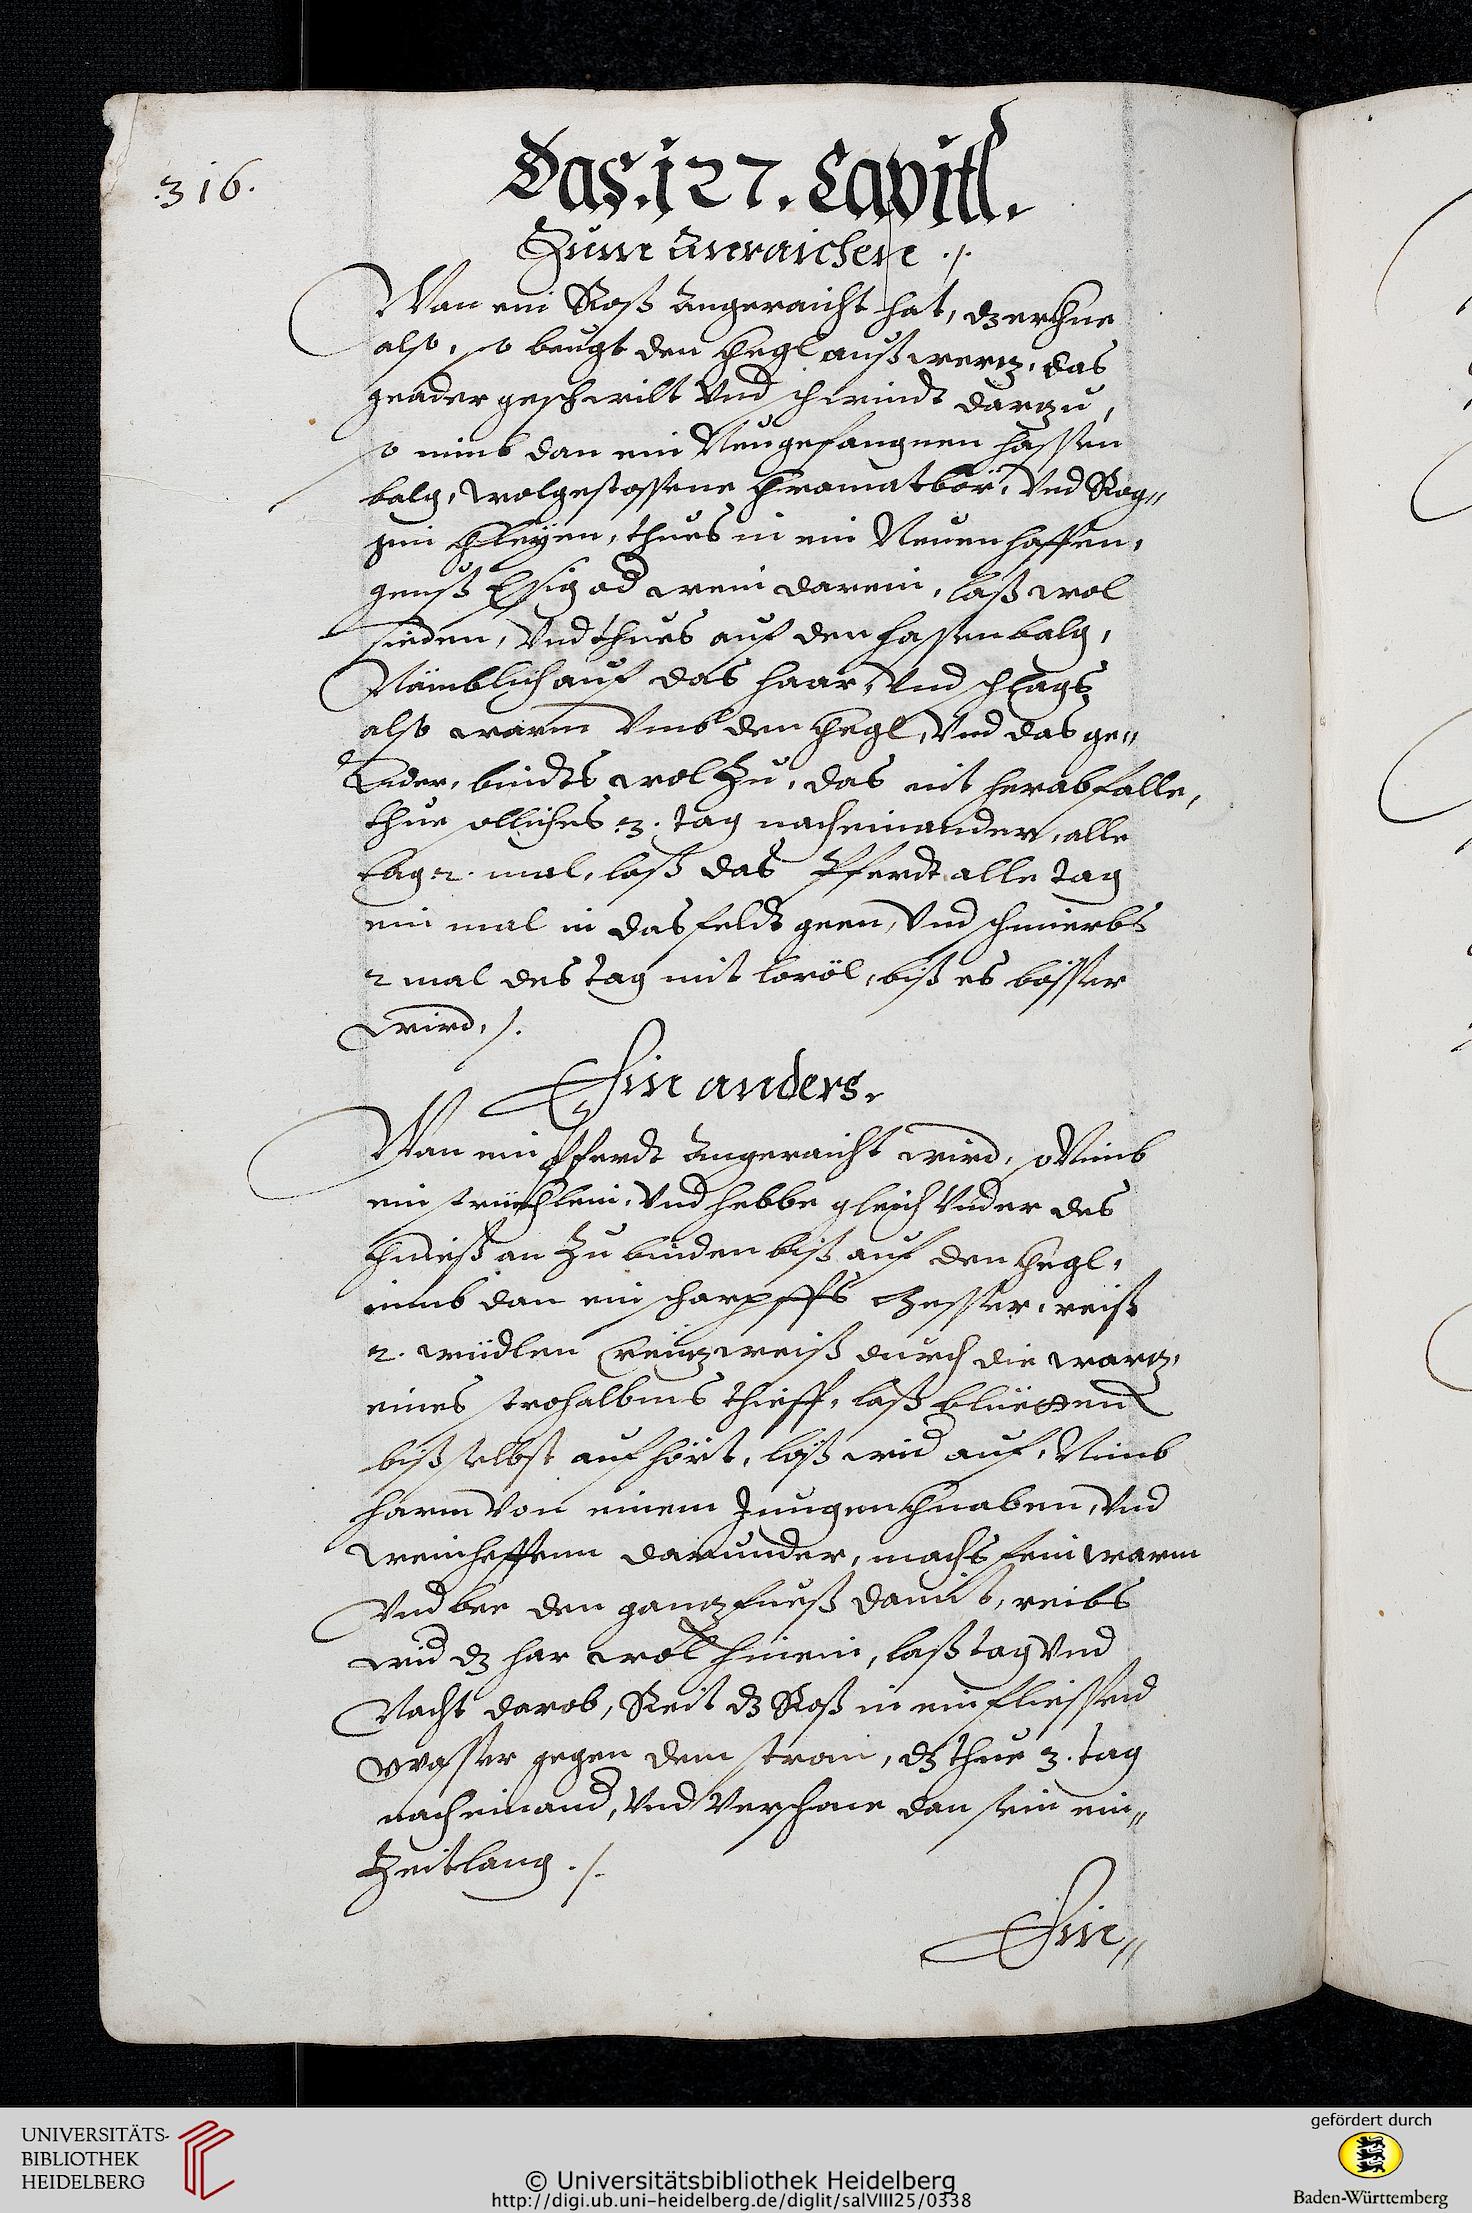 .316.
Das .127. Capitl.
Zum Anraichen ./.
Wan ein Roß Angeraicht hat, dz erkhne
also, so beugt den khegl außwertz, das
geader geschwilt Vnd schwindt darzu,
so nimb dan ein Neugefangnen hassen
balg, wolgestossene khramatbör, Vnd Rog„
gen khleyen, thues in ein Neuen haffen,
geuß Essig od wein darein, laß wol
sieden, Vnd thues auf den hassenbalg,
Nämblich auf das haar, Vnd schlags
also warm Vmb den khegl, Vnd das ge„
ader, bindts wol Zu, das nit herabfalle,
thue solliches .3. tag nacheinander, alle
tag 2. mal, laß das Pferdt alle tag
ein mal in das feldt geen, Vnd schmierbs
2 mal des tag mit loröl, biß es bösser
wird, /.
Ein anders.
Wan ein Pferdt Angeraicht wird, so Nimb
ein strickhlein, Vnd hebbe gleich Vnder des
khnieß an Zu binden biß auf den khegl,
nimb dan ein scharpffs Messer, reiß
2. wündlen Creizweiß durch die wartz,
eines strohalbms thieff, laß blüetten
biß selbst aufhört, löß wid auf, Nimb
harm Von einem Jungen khnaben, Vnd
weinheffenn darunder, machs fein warm
Vnd bee den gantz fueß damit, reibs
wid dz har wol hinein, laß tag Vnd
Nacht darob, Reit dz Roß in ein fliessend
wasser gegen dem strom, dz thue 3. tag
nacheinand, Vnd Verschone dan sein ein„
Zeitlang ./.
Ein„
UNIVERSITÄTS-
BIBLIOTHEK
HEIDELBERG
© Universitätsbibliothek Heidelberg
http://digi.ub.uni-heidelberg.de/diglit/salVIII25/0338
gefördert durch
Baden-Württemberg